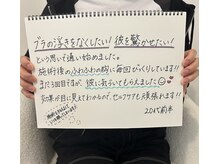 ブラの浮きをなくしたい！彼を驚かせたい！
という思いで通い始めました。
施術後のふわふわの胸に毎回びっくりしています！！
まだ3回目ですが、彼に気づいてもらえました☺
効果が目に見えてわかるので、セルフケアも頑張れます！！
20代前半